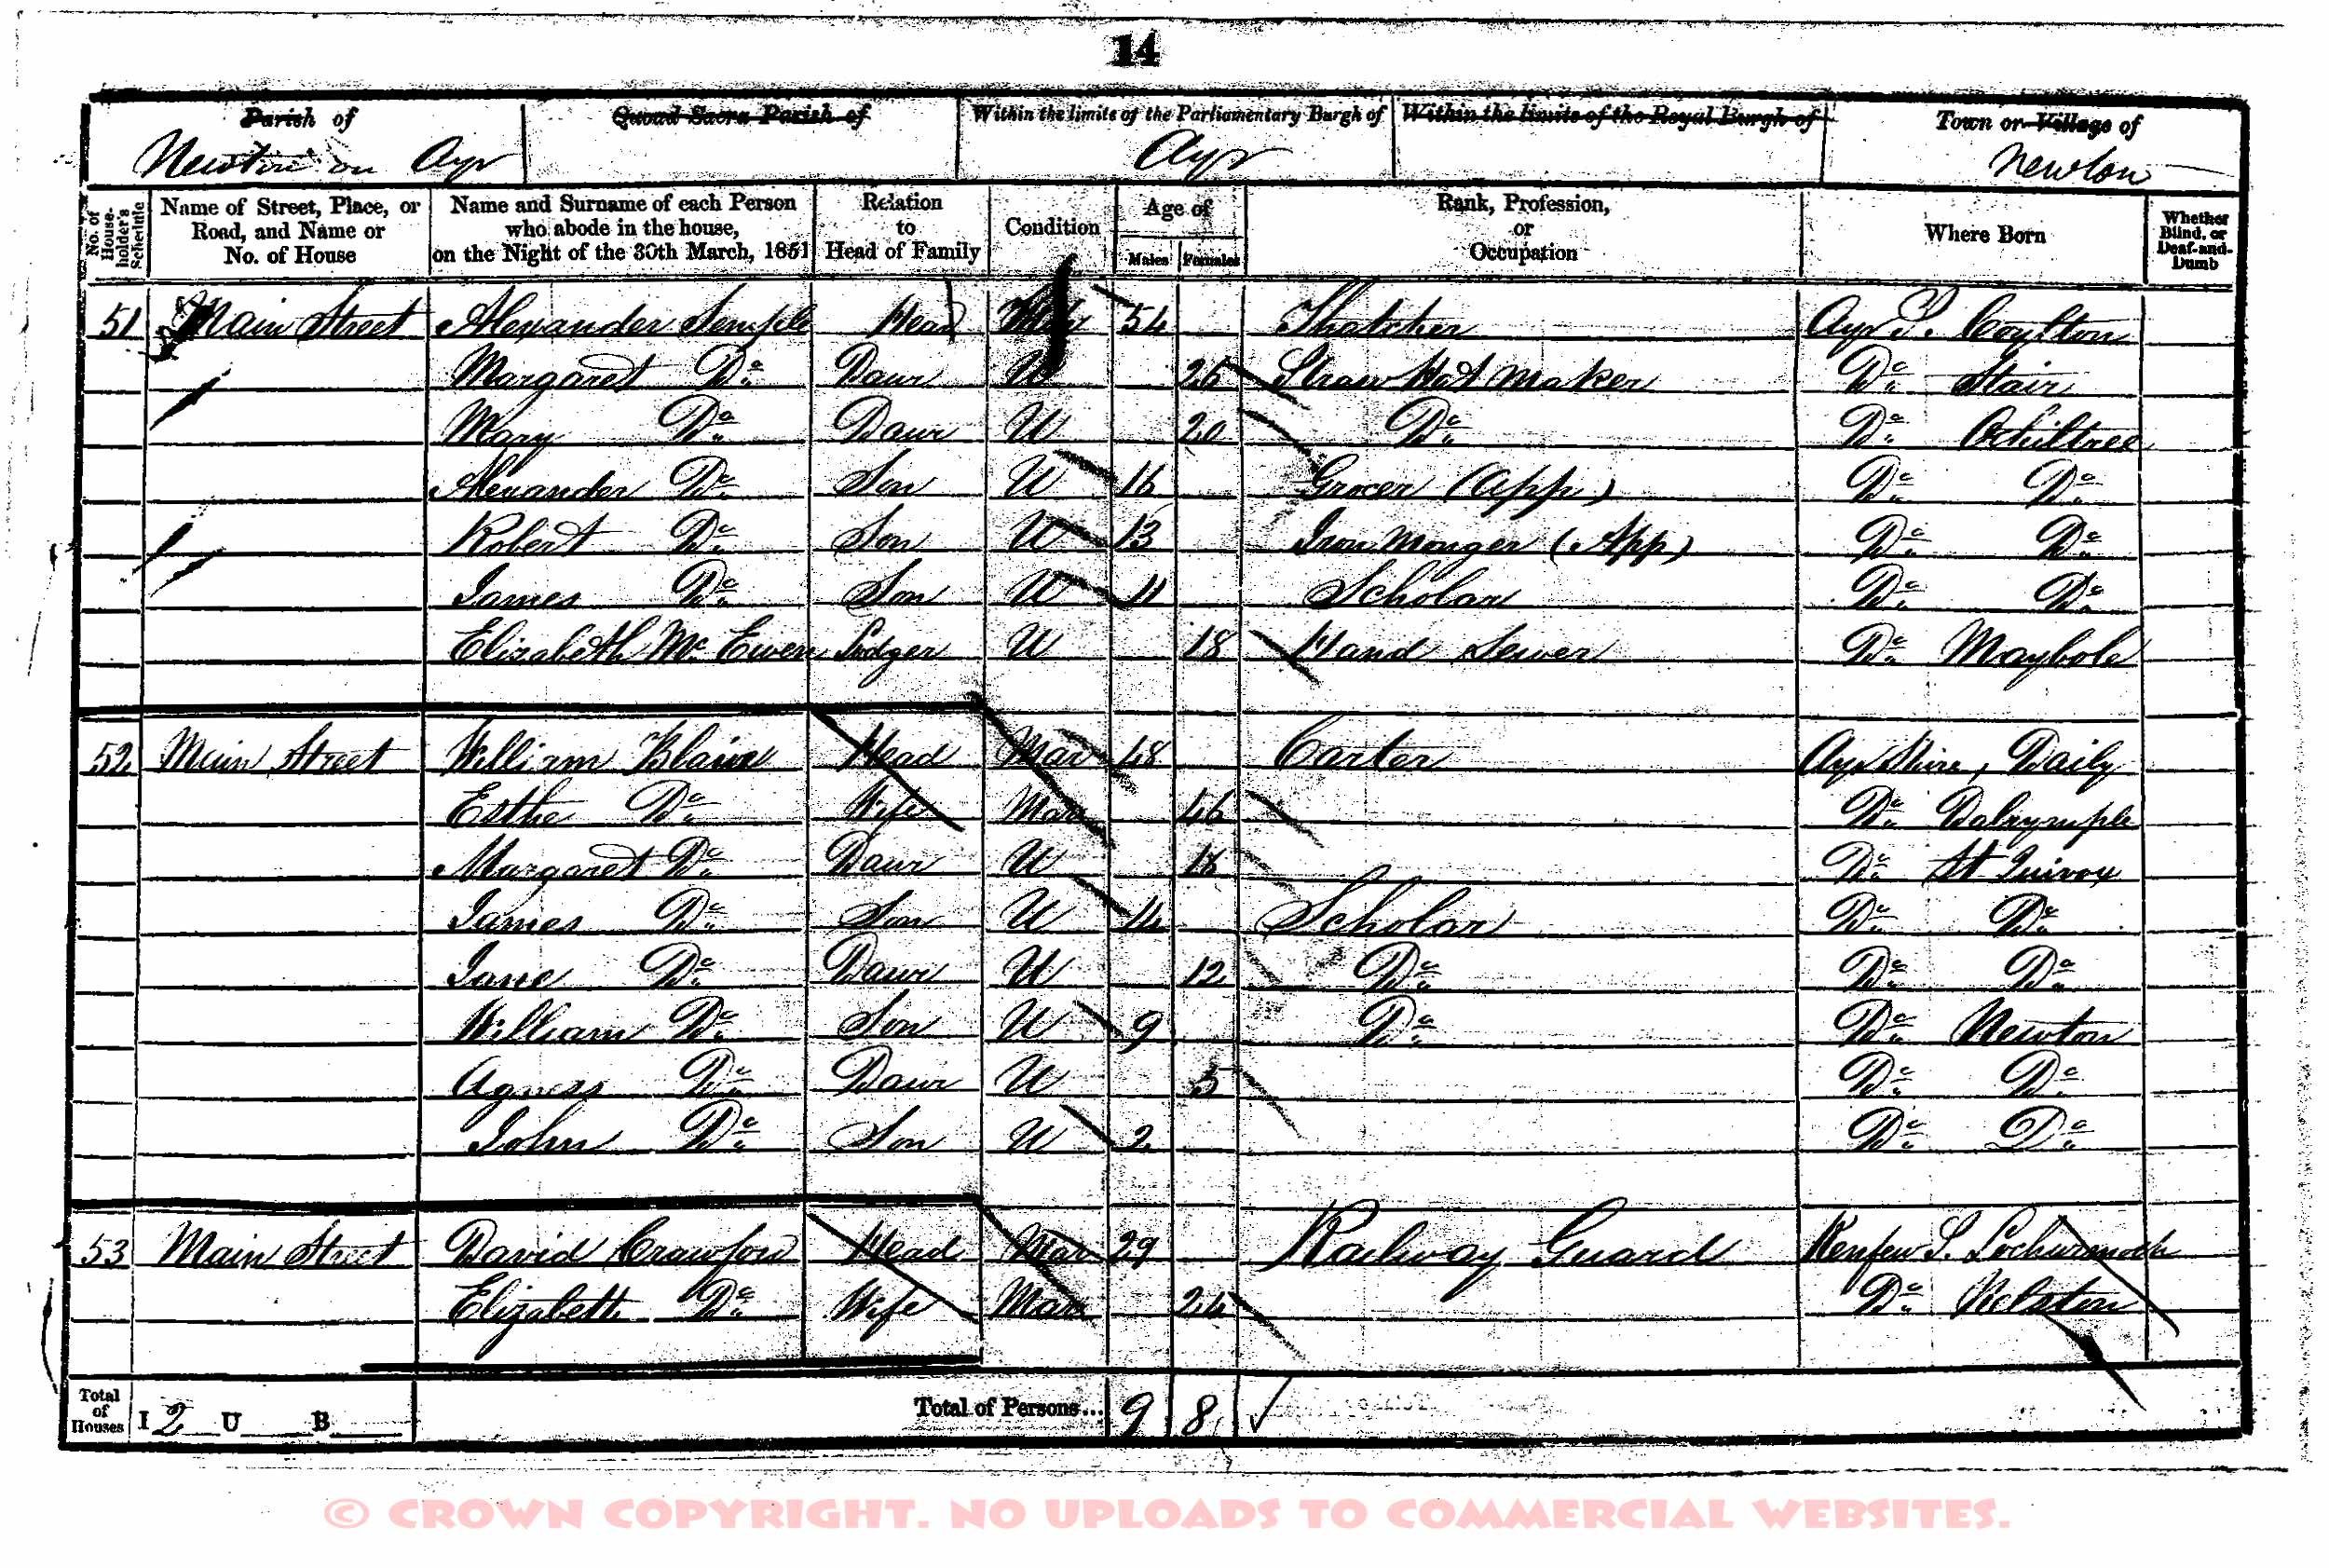 14
Parish of Quoad Sacra Parish of Within the limits of the Parliamentary Burgh of Within the limits of the Royal Burgh of Town or Village of
Newton on Ayr Ayr Newton
No. of House-holder's Schedule Name of Street, Place, or Road, and Name or No. of House Name and Surname of each Person who abode in the house, on the Night of the 30th March, 1851 Relation to Head of Family Condition Age of Males Females Rank, Profession, or Occupation Where Born Whether Blind, or Deaf-and-Dumb
51 Main Street Alexander Semple Head 54 Thatcher Ayr S. Coylton
Margaret Do Daur U 26 Straw Hat Maker Do Stair
Mary Do Daur U 20 Do Do Ochiltree
Alexander Do Son U 16 Grocer (App) Do Do
Robert Do Son U 13 Iron Monger (App) Do Do
James Do Son U 11 Scholar Do Do
Elizabeth Mc Ewen Lodger U 18 Hand Sewer Do Maybole
52 Main Street William Blain Head Mar 48 Carter Ayr Shire, Daily
Esthe Do Wife Mar 46 Do Dalrymple
Margaret Do Daur U Do St Quivox
James Do Son U 14 Scholar Do Do
Jane Do Daur U 12 Do Do Do
William Do Son U 9 Do Do Newton
Agness Do Daur U 5 Do Do
John Do Son U 2 Do Do
53 Main Street David Crawford Head Mar 29 Railway Guard Renfew S. Lochwinnoch
Elizabeth Do Wife Mar 24 Do
Total of Houses I 2 U B Total of Persons... 9 8
© CROWN COPYRIGHT. NO UPLOADS TO COMMERCIAL WEBSITES.